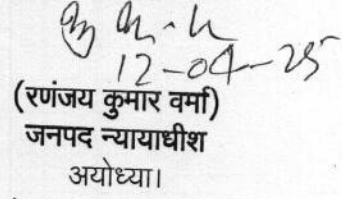 12-04-25
(रणंजय कुमार वर्मा)
जनपद न्यायाधीश
अयोध्या।